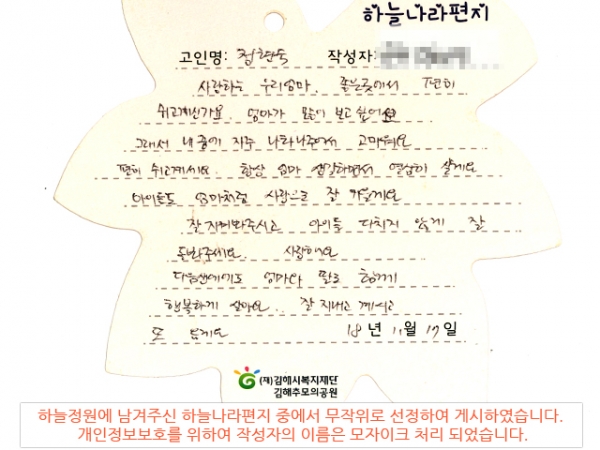 하늘나라편지
고인명: 정현숙 작성자:
사랑하는 우리엄마. 좋은곳에서 편히
쉬고계신가요. 엄마가 많이 보고 싶어요
그래서 내 꿈에 자주 나타나주어서 고마워요
편히 쉬고계세요. 항상 엄마 생각하면서 열심히 살게요
아이들도 엄마처럼 사랑으로 잘 키울게요
잘 지켜봐주시고 아이들 다치지 않게 잘
돌봐주세요. 사랑해요
다음생에도 엄마와 딸로 함께
행복하게 살아요.. 잘 지내고 계시고
또 올게요 18년 11월 17일
(재)김해시복지재단
김해추모의공원
하늘정원에 남겨주신 하늘나라편지 중에서 무작위로 선정하여 게시하였습니다.
개인정보보호를 위하여 작성자의 이름은 모자이크 처리 되었습니다.